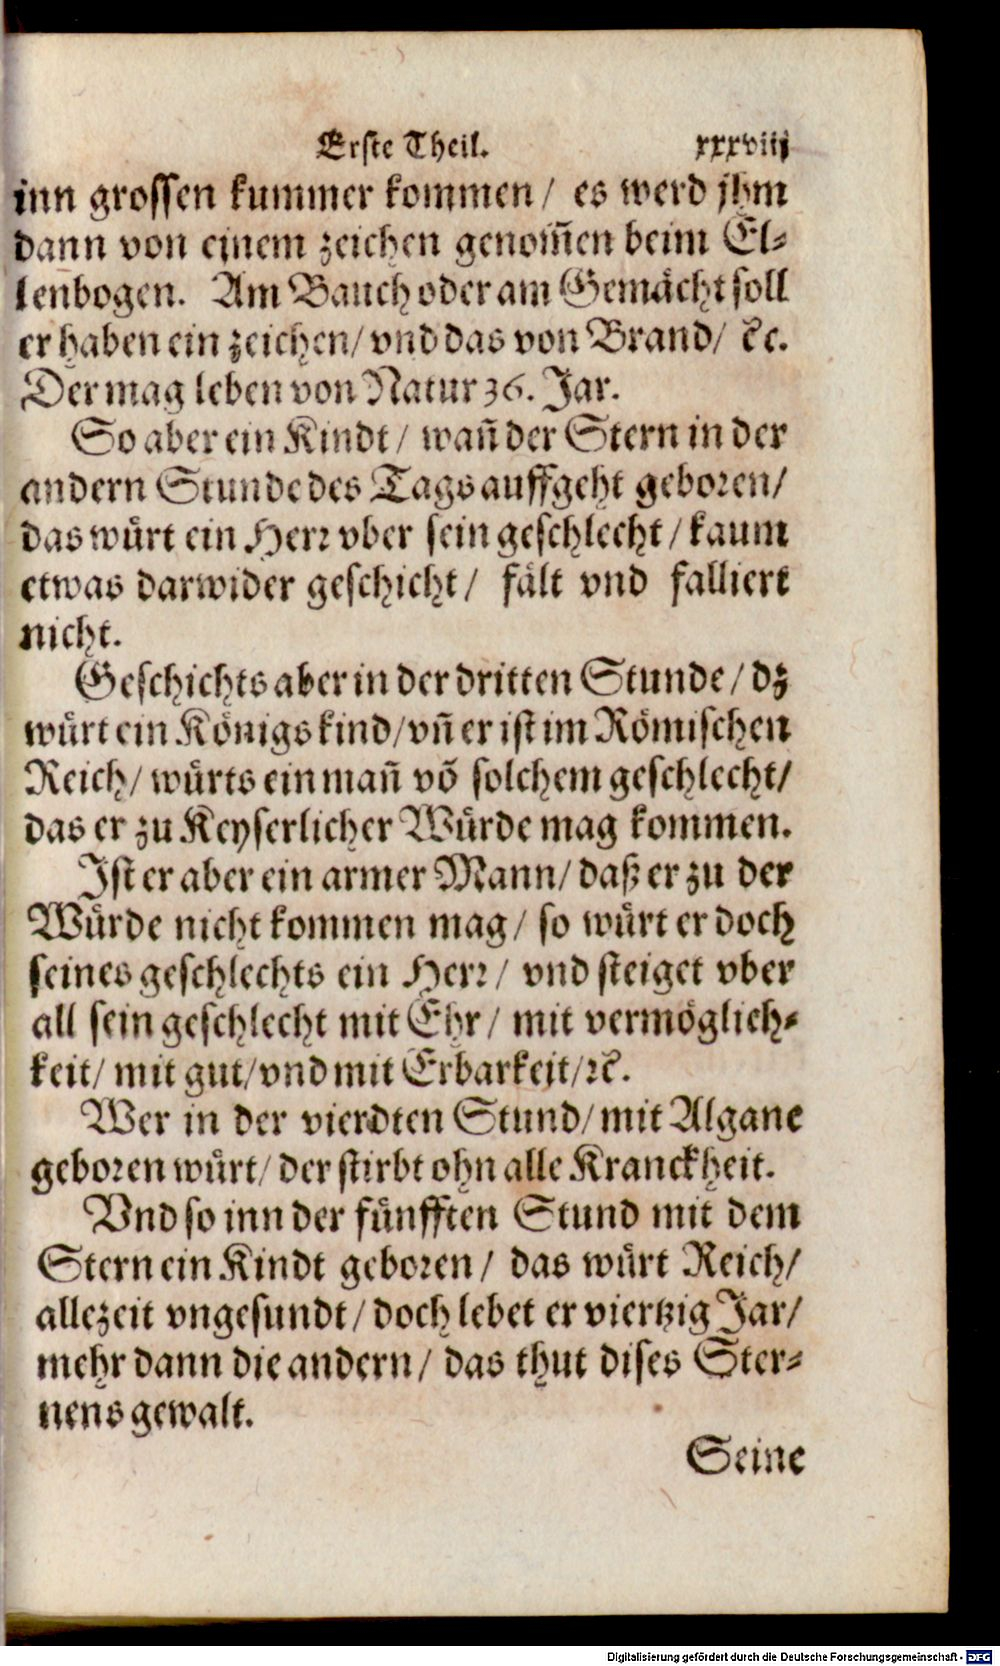 Erste Theil. xxxviij
inn grossen kummer kommen/ es werd jhm
dann von einem zeichen genom̃en beim El⸗
lenbogen. Am Bauch oder am Gemächt soll
er haben ein zeichen/ vnd das von Brand/ ꝛc.
Der mag leben von Natur 36. Jar.
So aber ein Kindt/ wañ der Stern in der
andern Stunde des Tags auffgeht geboren/
das wuͤrt ein Herr vber sein geschlecht/ kaum
etwas darwider geschicht/ fält vnd falliert
nicht.
Geschichts aber in der dritten Stunde/ dz
wuͤrt ein Königs kind/ vñ er ist im Römischen
Reich/ wuͤrts ein mañ võ solchem geschlecht/
das er zu Keyserlicher Wuͤrde mag kommen.
Ist er aber ein armer Mann/ daß er zu der
Wuͤrde nicht kommen mag/ so wuͤrt er doch
seines geschlechts ein Herr/ vnd steiget vber
all sein geschlecht mit Ehr/ mit vermöglich⸗
keit/ mit gut/ vnd mit Erbarkeit/ ꝛc̃.
Wer in der vierdten Stund/ mit Algane
geboren wuͤrt/ der stirbt ohn alle Kranckheit.
Vnd so inn der fuͤnfften Stund mit dem
Stern ein Kindt geboren/ das wuͤrt Reich/
allezeit vngesundt/ doch lebet er viertzig Jar/
mehr dann die andern/ das thut dises Ster⸗
nens gewalt.
Seine
Digitalisierung gefördert durch die Deutsche Forschungsgemeinschaft - DFG